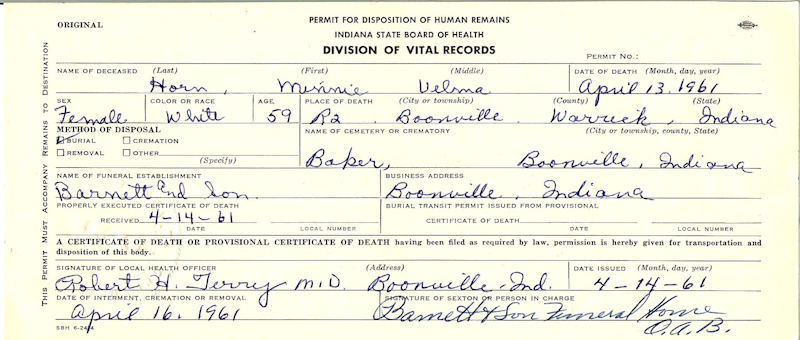 ORIGINAL
PERMIT FOR DISPOSITION OF HUMAN REMAINS
INDIANA STATE BOARD OF HEALTH
DIVISION OF VITAL RECORDS
PERMIT NO.:
THIS PERMIT MUST ACCOMPANY REMAINS TO DESTINATION
NAME OF DECEASED (Last) (First) (Middle) DATE OF DEATH (Month, day, year)
Horn, Minnie Velma April 13, 1961
SEX COLOR OR RACE AGE PLACE OF DEATH (City or township) (County) (State)
Female White 59 R2 Boonville Warrick, Indiana
METHOD OF DISPOSAL NAME OF CEMETERY OR CREMATORY (City or township, county, State)
BURIAL CREMATION
REMOVAL OTHER
(Specify)
Baker, Boonville, Indiana
NAME OF FUNERAL ESTABLISHMENT BUSINESS ADDRESS
Barnett and Son Boonville, Indiana
PROPERLY EXECUTED CERTIFICATE OF DEATH BURIAL TRANSIT PERMIT ISSUED FROM PROVISIONAL
RECEIVED 4-14-61 CERTIFICATE OF DEATH
DATE LOCAL NUMBER DATE LOCAL NUMBER
A CERTIFICATE OF DEATH OR PROVISIONAL CERTIFICATE OF DEATH having been filed as required by law, permission is hereby given for transportation and
disposition of this body.
SIGNATURE OF LOCAL HEALTH OFFICER (Address) DATE ISSUED (Month, day, year)
Robert H. Terry M.D. Boonville, Ind. 4-14-61
DATE OF INTERMENT, CREMATION OR REMOVAL SIGNATURE OF SEXTON OR PERSON IN CHARGE
April 16, 1961 Barnett & Son Funeral Home
O.A.B.
SBH 6-24-4